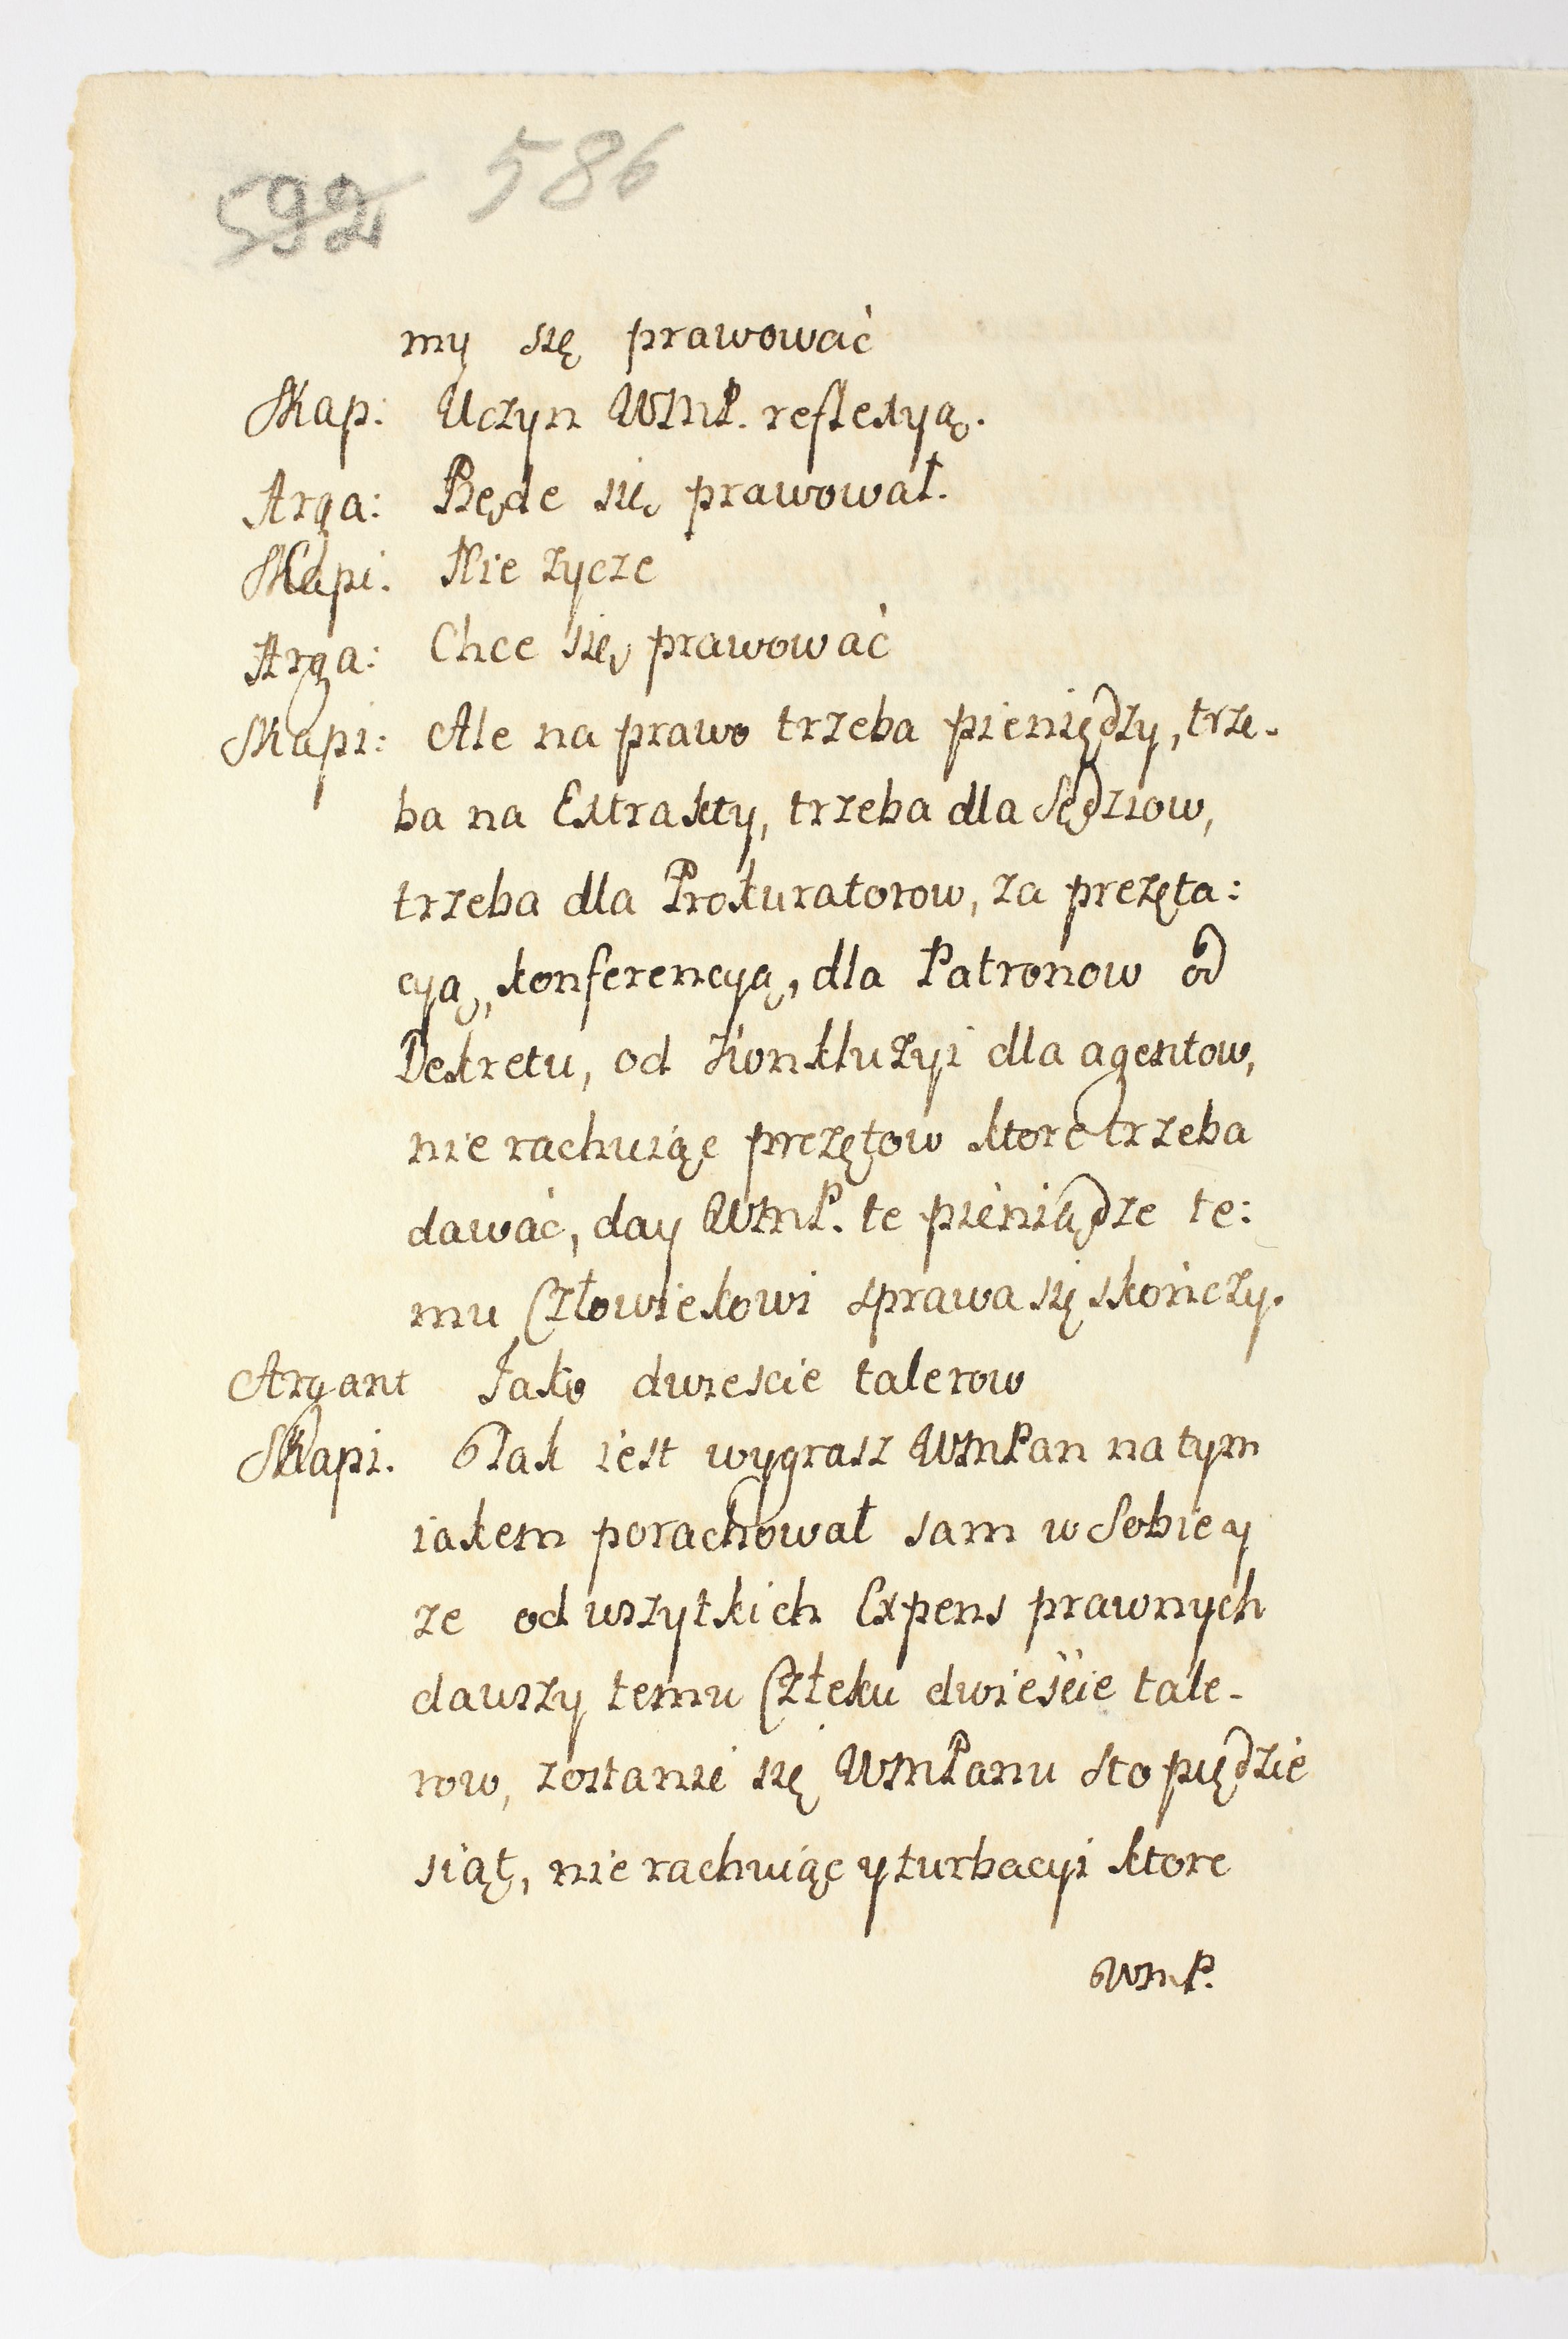 592 586
my się prawować
Skap: Uczyn WMP. reflexyą.
Arga: Będe się prawował.
Skapi. Nie zycze
Arga: Chce się prawować
Skapi: Ale na prawo trzeba pieniędzy, trze-
ba na Extrakty, trzeba dla Sędziow,
trzeba dla Prokuratorow, za prezęta:
cyą, konferencyą, dla Patronow od
Dekretu, od Konkluzyi dla agentow,
nie rachuiąc prezętow ktore trzeba
dawać, day WMP. te pieniądze te:
mu Człowiekowi sprawa się skończy.
Argant Jako dwiescie talerow
Skapi. Tak iest wygrasz WMPan na tym
iakem porachował sam w Sobie y
ze od wszytkich Expens prawnych
dawszy temu Człeku dwieście tale-
row, zostanie się WMPanu sto piędzie
siąt, nie rachuiąc y turbacyi ktore
WMP.